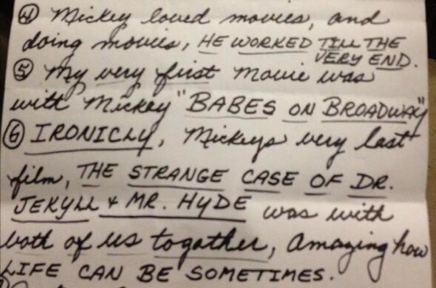 ④ Mickey loved movies, and
doing movies, HE WORKED TILL THE
VERY END.
⑤ My very first Movie was
with Mickey "BABES ON BROADWAY"
⑥ IRONICLY, Mickeys very last
film, THE STRANGE CASE OF DR.
JEKYLL & MR. HYDE was with
both of us togather, Amazing how
LIFE CAN BE SOMETIMES.